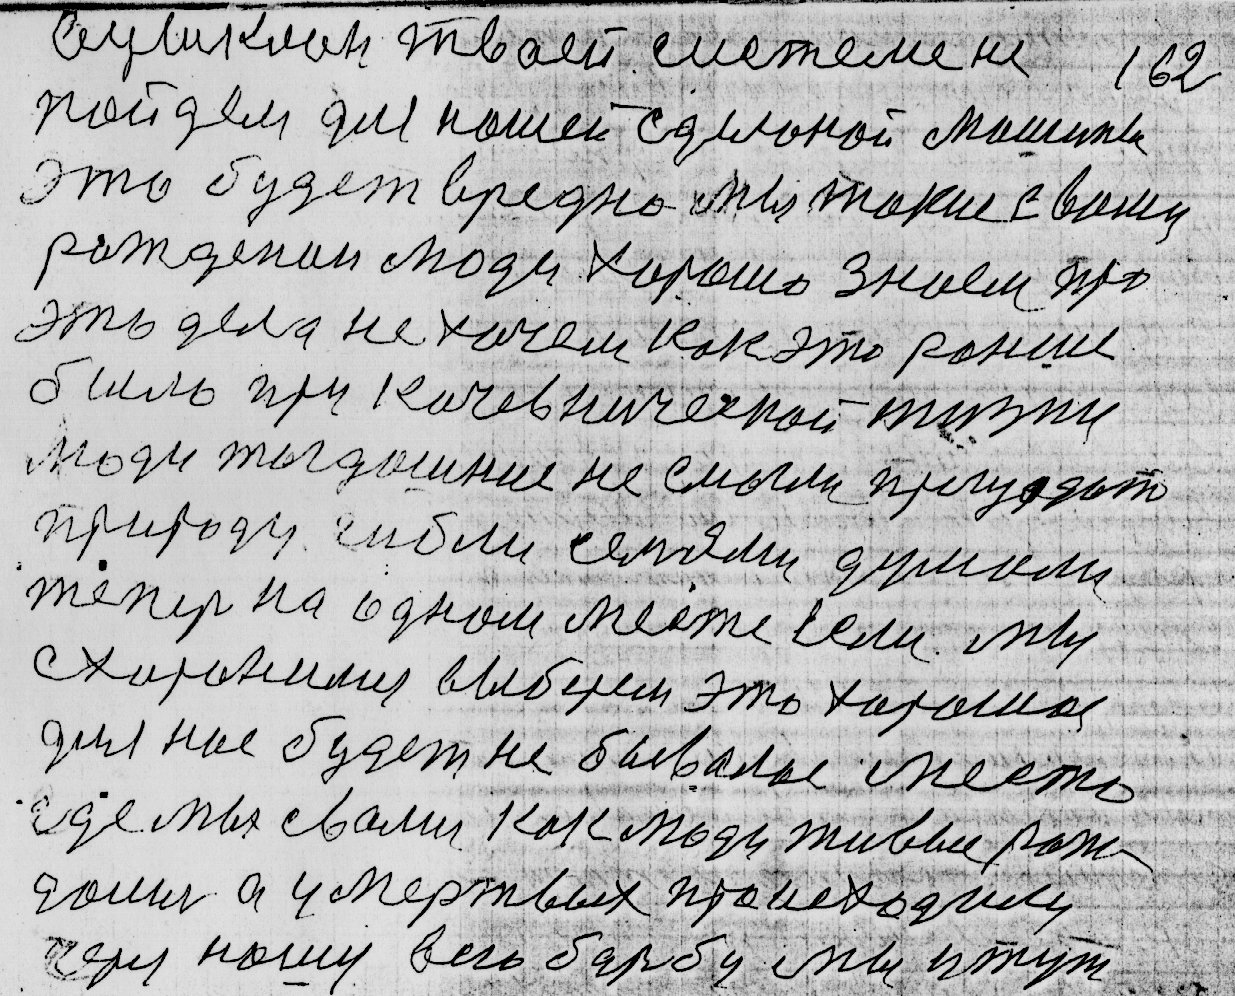 твоей системе не 162
пойдем для нашей сделоной машины
это будет вредно мы такие с вами
рождении люди хорошо знаем про
это дела не хочем как это раньше
было при кочевнической жизни
люди тогдашние не смогли
природу гибли семями думали
тепер на одном месте если мы
схоронимы выберем это хорошое
для нас будет не бывалое место
где мы свами как люди живые рож
а у мертвых происходили
через нашу всю барбу мы и тут